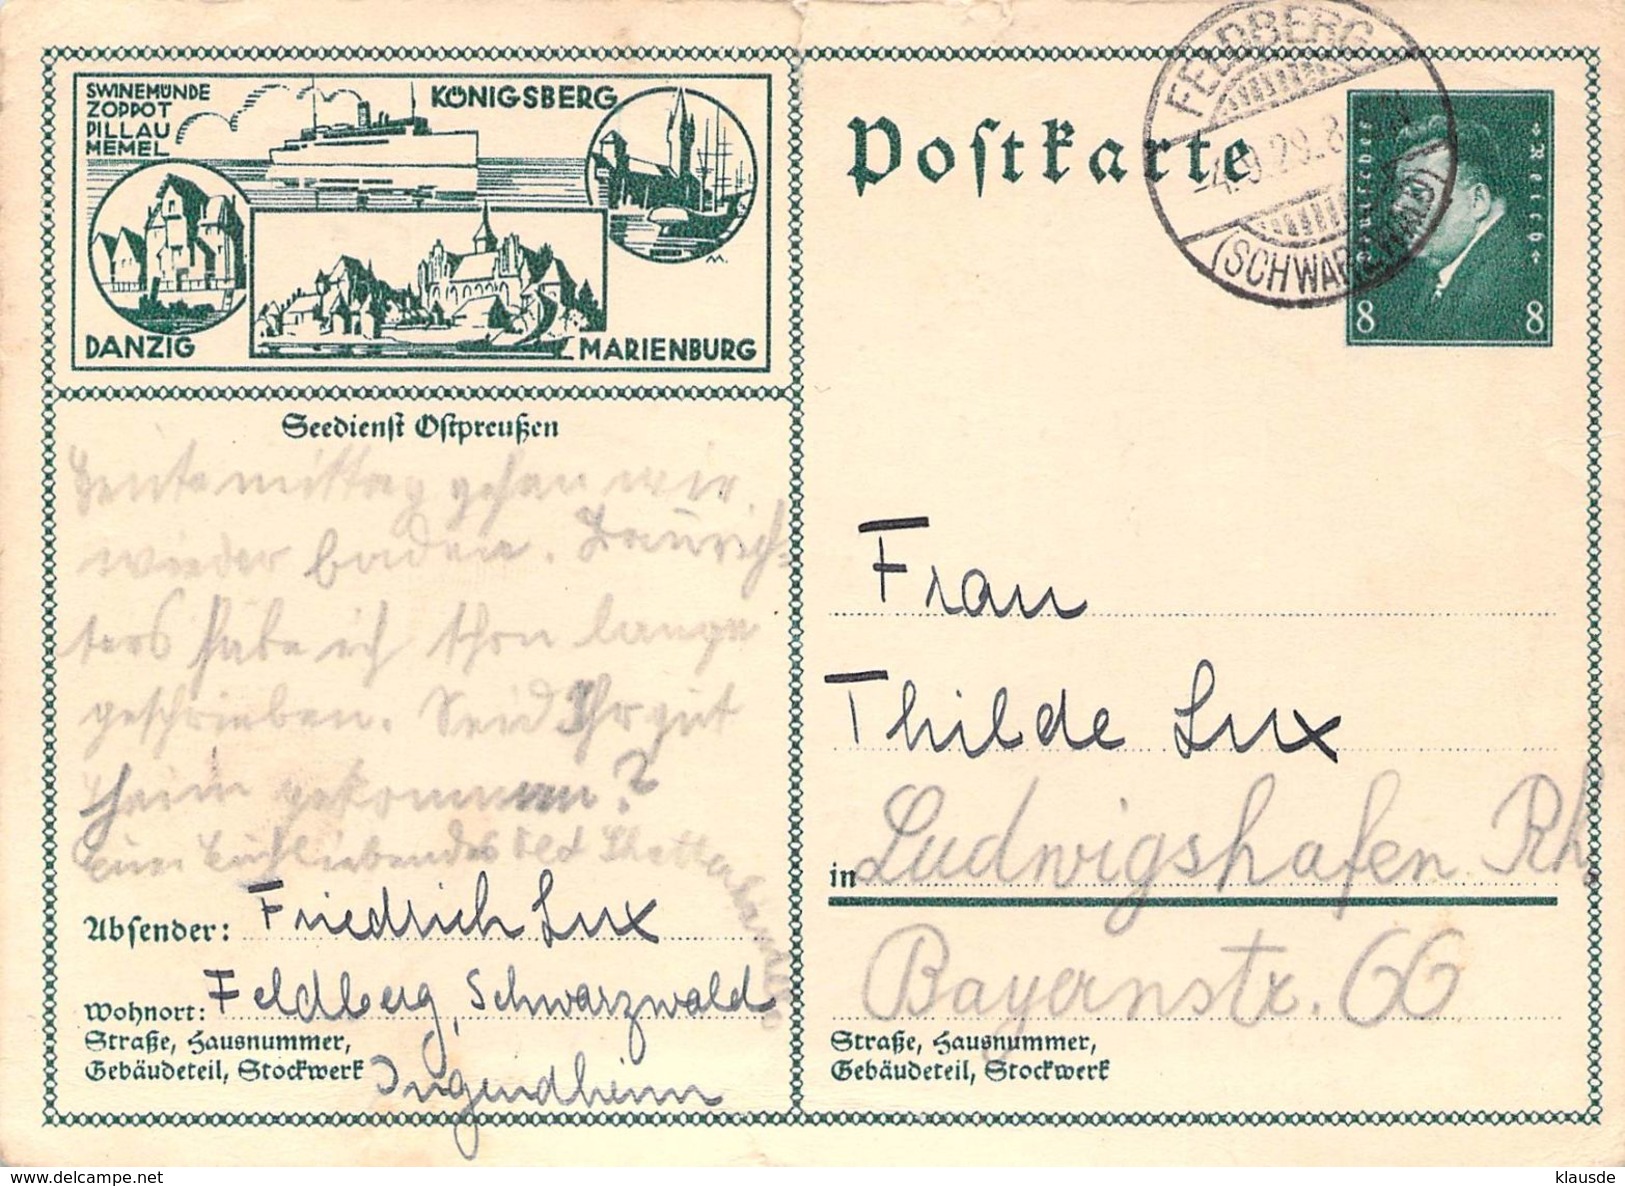 SWINEMÜNDE
ZOPPOT
PILLAU
MEMEL
KÖNIGSBERG
DANZIG
MARIENBURG
M.
Seedienst Ostpreußen
Heute mittag gehen wir
wieder baden.
habe ich schon lange
geschrieben. Seid Ihr gut
heim gekommen?
Euer Euch liebendes
Absender: Friedrich Lux
Wohnort: Feldberg, Schwarzwald
Straße, Hausnummer,
Gebäudeteil, Stockwerk
Jugendheim
Postkarte
FELDBERG
-4.9.29.8
(SCHWARZWALD)
Deutsches
Reich
8 8
Frau
Thilde Lux
in Ludwigshafen Rh.
Bayernstr. 66
Straße, Hausnummer,
Gebäudeteil, Stockwerk
delcampe.net
klausde